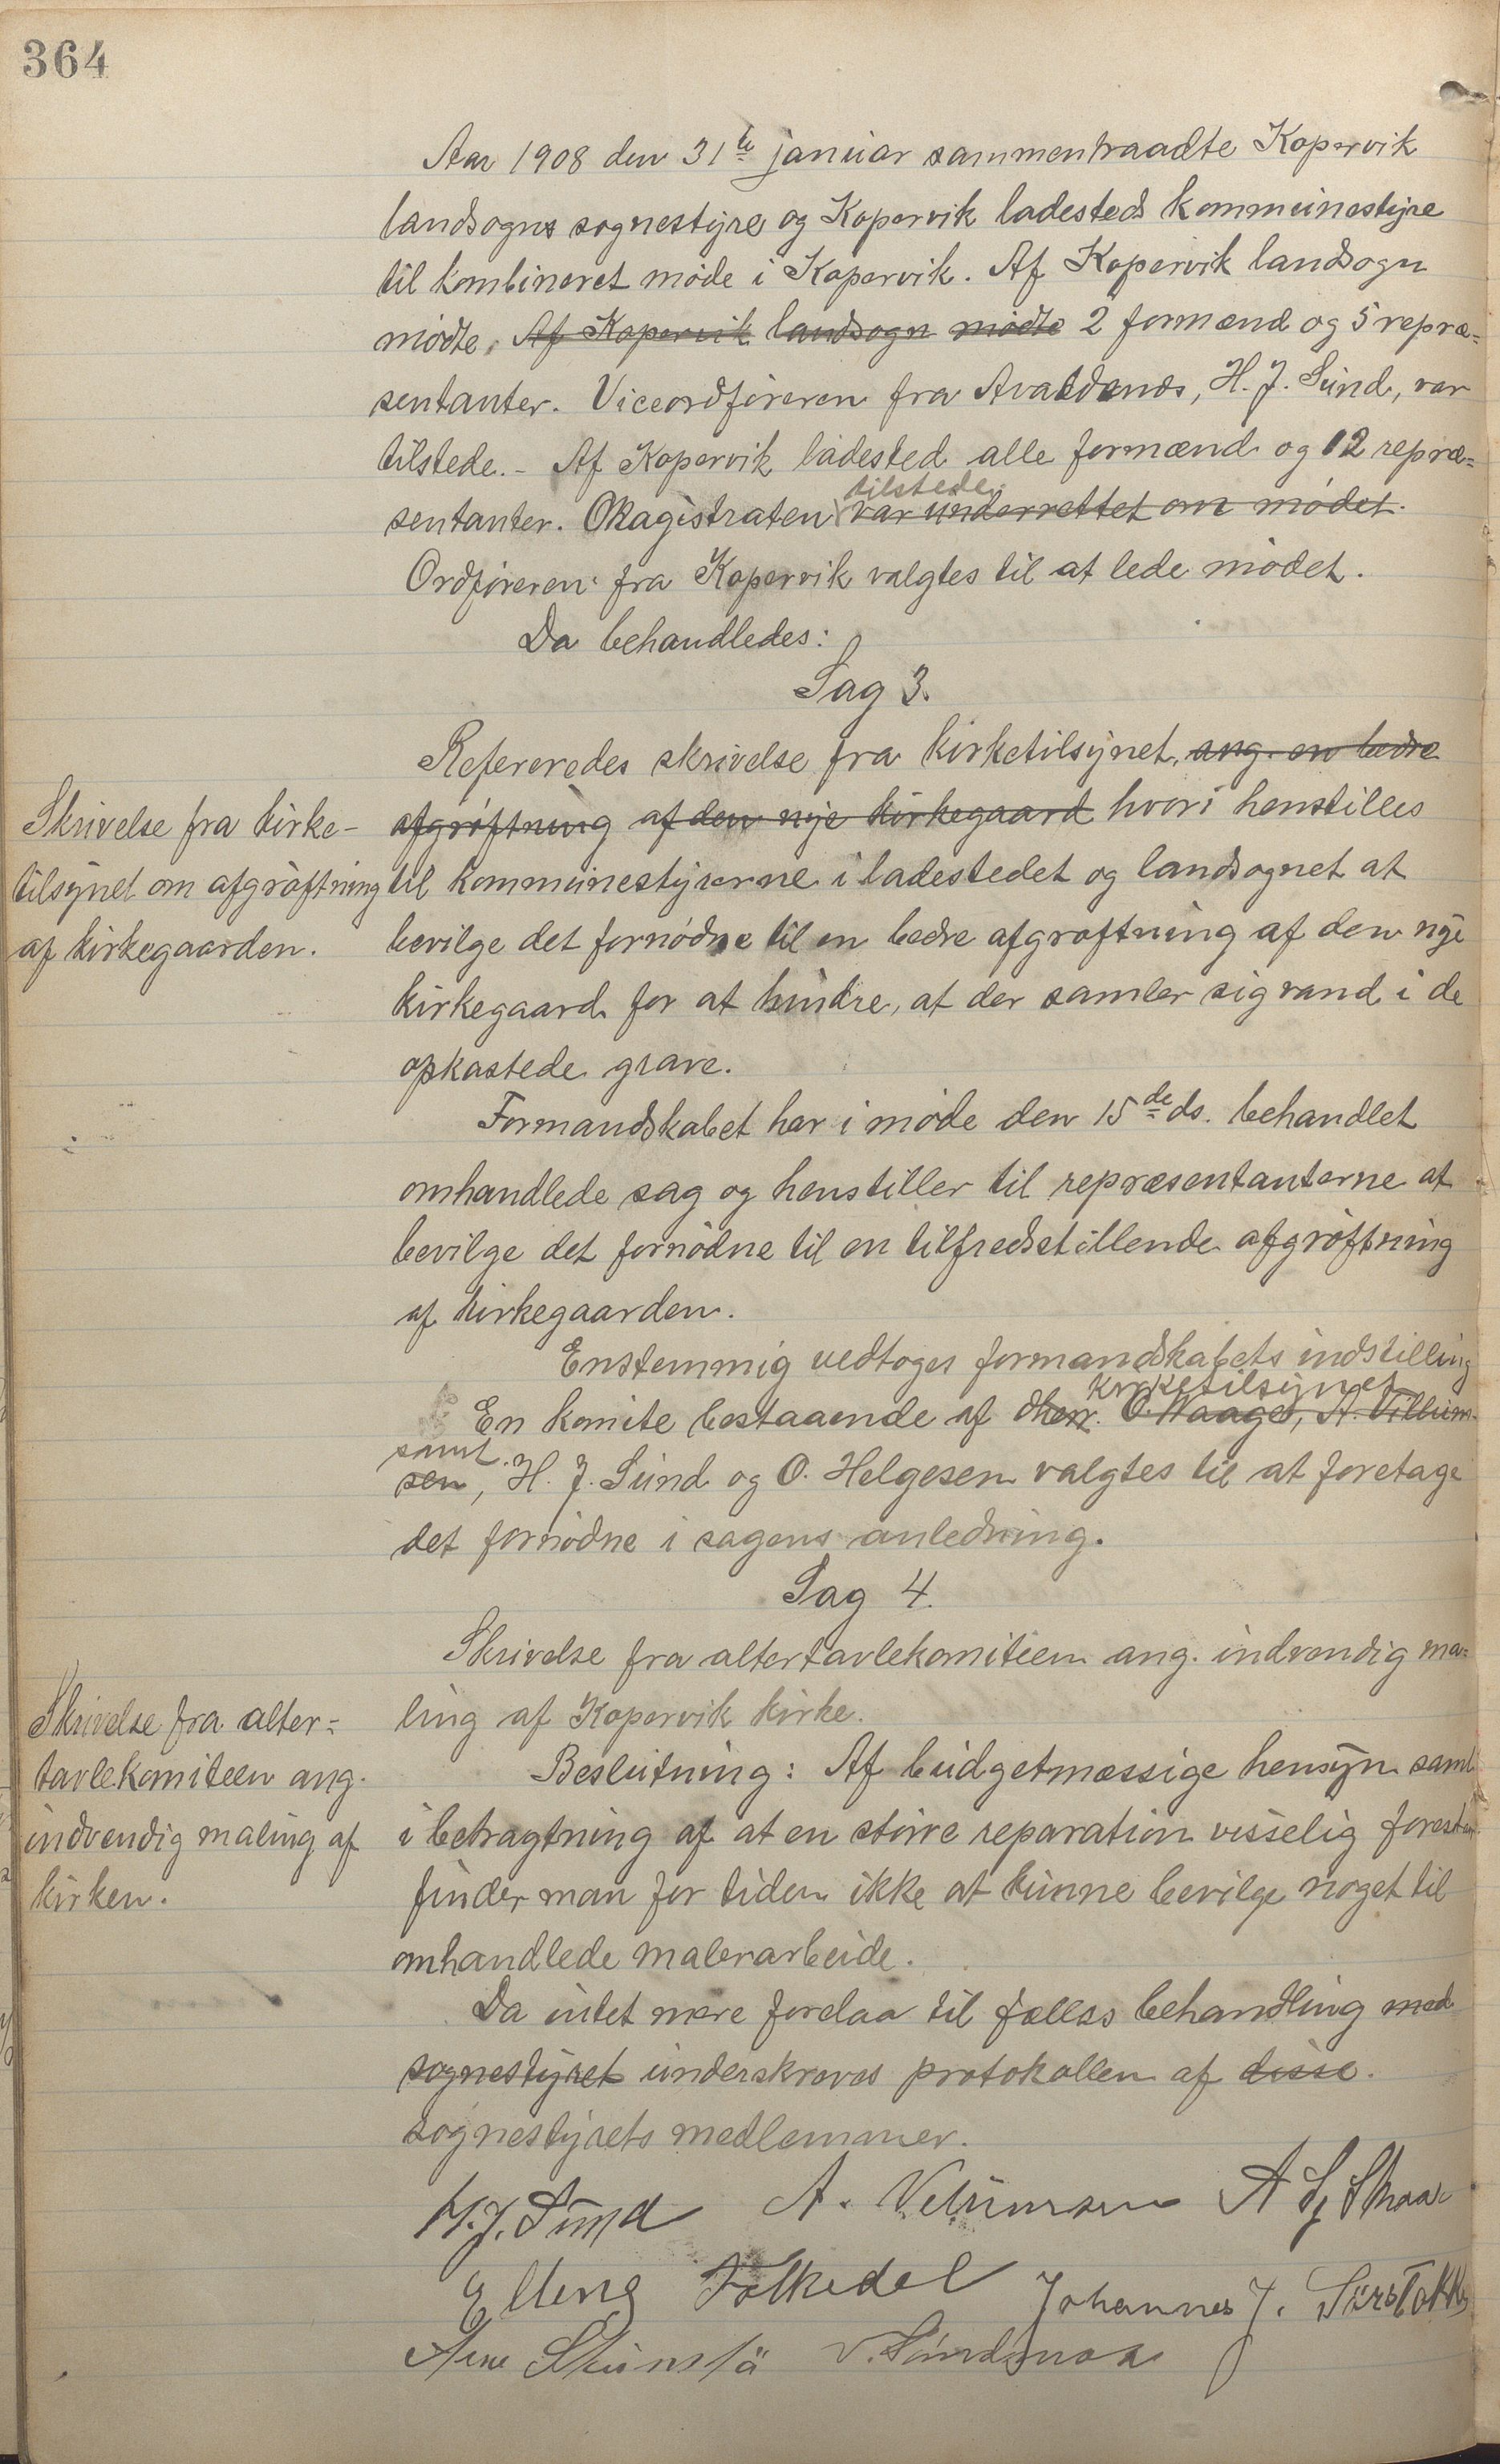 364
Aar 1908 den 31te januar sammentraadte Kopervik
landsogns sognestyre og Kopervik ladesteds kommunestyre
til kombineret møde i Kopervik. Af Kopervik landsogn
mødte, Af Kopervik landsogn mødte 2 formænd og 5 repræ=
sentanter. Viceordføreren fra Avaldsnes, H. J. Sund, var
tilstede. - Af Kopervik ladested alle formænd og 12 repræ=
tilstede.
sentanter. Magistraten var underrettet om mødet.
Ordføreren fra Kopervik valgtes til at lede mødet.
Da behandledes:
Sag 3.
Refereredes skrivelse fra kirketilsynet, ang. en bedre
afgrøftning af den nye kirkegaard hvori henstilles
til kommunestyrerne i ladestedet og landsognet at
bevilge det fornødne til en bedre afgrøftning af den nye
kirkegaard for at hindre, at der samler sig vand i de
opkastede grave.
Skrivelse fra kirke-
tilsynet om afgrøftning
af kirkegaarden.
Formandskabet har i møde den 15de ds. behandlet
omhandlede sag og henstiller til repræsentanterne at
bevilge det fornødne til en tilfredsstillende afgrøftning
af kirkegaarden.
Enstemmig vedtoges formandskabets indstilling
kirketilsynet
En komite bestaaende af dherr. O. Waage, A. Villum-
samt
sen, H. J. Sund og O. Helgesen valgtes til at foretage
det fornødne i sagens anledning.
Sag 4.
Skrivelse fra altertavlekomiteen ang. indvendig ma=
ling af Kopervik kirke.
Skrivelse fra alter=
tavlekomiteen ang.
indvendig maling af
kirken.
Beslutning: Af budgetmæssige hensyn samt
i betragtning af at en større reparation visselig forestaar
finder man for tiden ikke at kunne bevilge noget til
omhandlede malerarbeide.
Da intet mere forelaa til fælles behandling med
sognestyret underskreves protokollen af disse.
sognestyrets medlemmer.
H. J. Sund A. Velumsen A
Elling Folkedal Johannes J.
V.